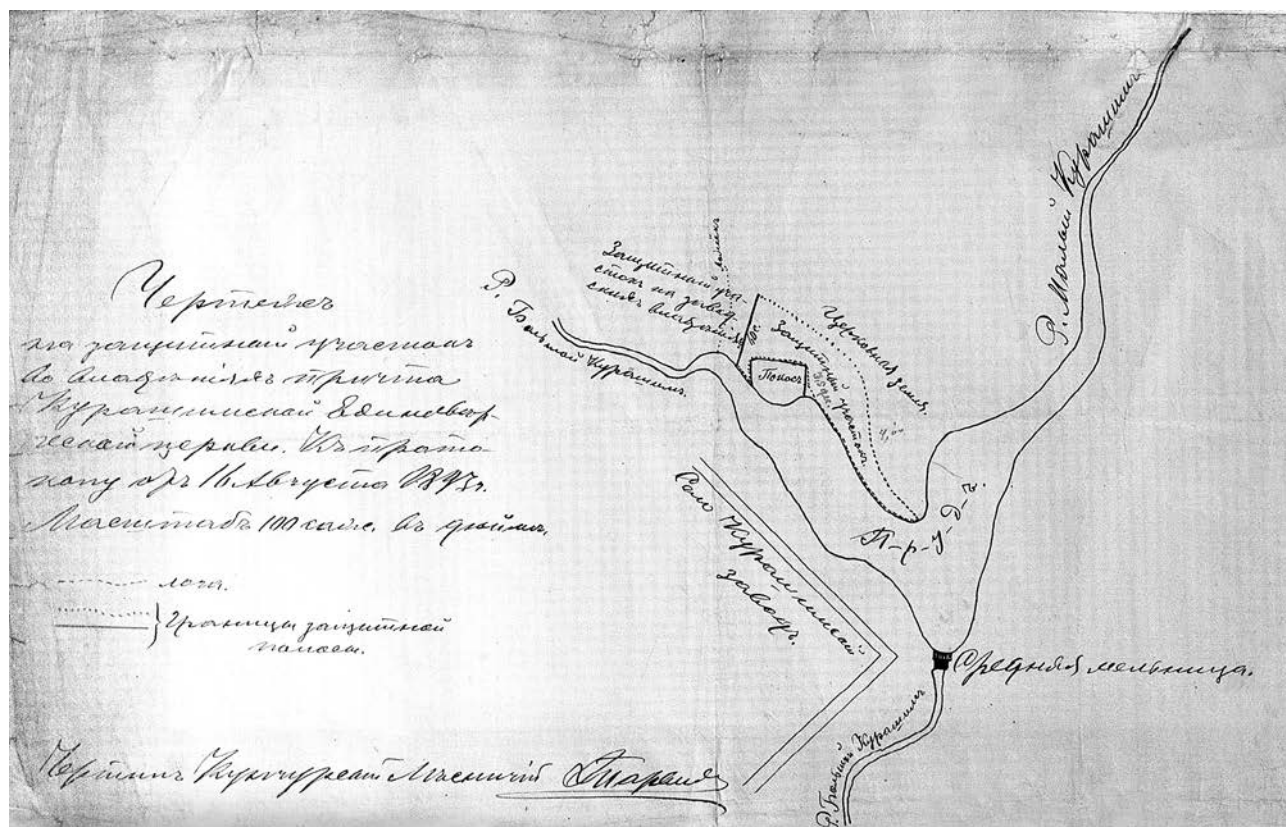 Чертежъ
на защитный участокъ
во владѣніяхъ причта
Курашимской Единовѣр-
ческой церкви. Къ прото-
колу отъ 16 Августа 1893 г.
Масштабъ 100 саж. въ дюймѣ.
лога.
Границы защитной
полосы.
Чертилъ Лѣсничій
Р. Большой Курашимъ.
Защитный уча-
стокъ на завод-
скихъ владѣніяхъ
Защитный участокъ
Покосъ
Церковная земля.
Р. Малый Курашимъ
П-р-у-д-ъ.
Село Курашимскій
заводъ.
Средняя мельница.
Р. Большой Курашимъ